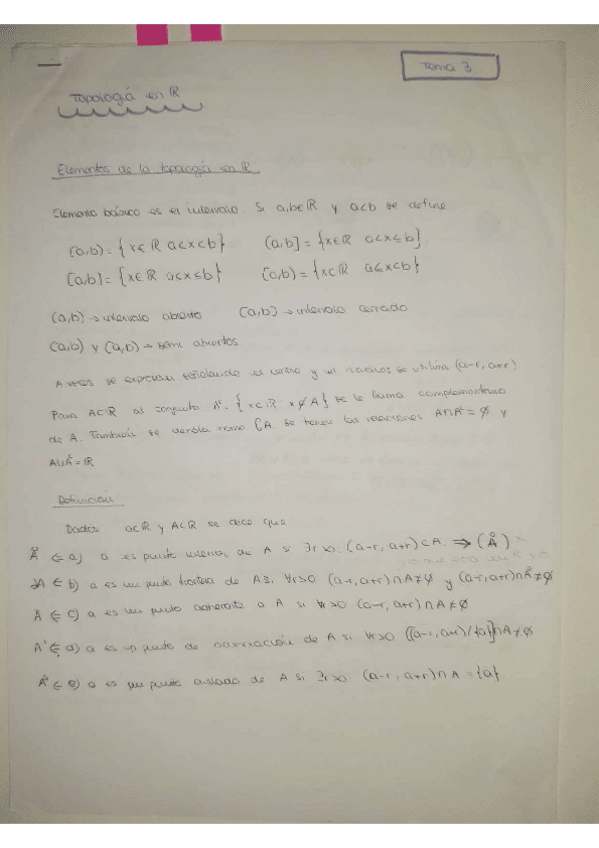 Tema 3
Topología en ℝ
Elementos de la topología en ℝ
Elemento básico es el intervalo. Si a,b∈ℝ y a<b se define
(a,b) = {x∈ℝ a<x<b} (a,b] = {x∈ℝ a<x≤b}
[a,b] = {x∈ℝ a≤x≤b} [a,b) = {x∈ℝ a≤x<b}
(a,b) → intervalo abierto [a,b] → intervalo cerrado
(a,b] y [a,b) → semi abiertos
A veces se expresan señalando el centro y el radio se utiliza (a-r, a+r)
Para A⊂ℝ al conjunto Aᶜ = {x∈ℝ: x∉A} se le llama complementario
de A. También se denota como ∁A. Se tienen las relaciones A∩Aᶜ=∅ y
A∪Aᶜ=ℝ
Definición
Dados a∈ℝ y A⊂ℝ se dice que
Å ⇐ a) a es punto interior de A si ∃r>0: (a-r, a+r)⊂A. ⇒ (Å)
∂A ∈ b) a es un punto frontera de A si ∀r>0 (a-r, a+r)∩A≠∅ y (a-r, a+r)∩Aᶜ≠∅
Ā ∈ c) a es un punto adherente a A si ∀r>0 (a-r, a+r)∩A≠∅
A' ∈ d) a es un punto de acumulación de A si ∀r>0 [(a-r, a+r)/{a}]∩A≠∅
∈ e) a es un punto aislado de A si ∃r>0 (a-r, a+r)∩A = {a}